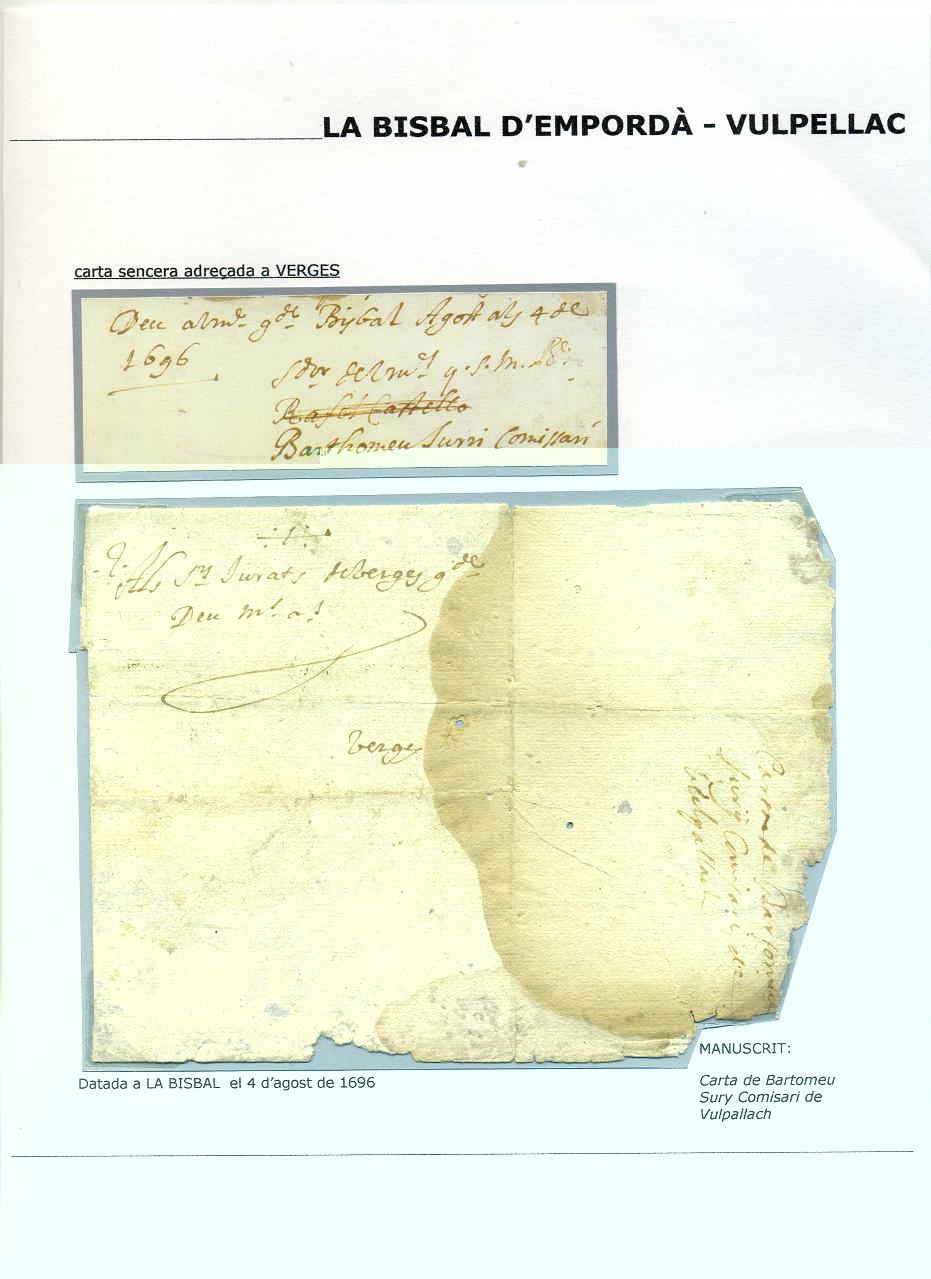 LA BISBAL D'EMPORDÀ - VULPELLAC
carta sencera adreçada a VERGES
Deu a vmd. gde. Bisbal Agost als 4 de
1696
q. s. M. B.
Rafel Castello
Barthomeu Surri Comissari
Als Srs Jurats de Verges gde
Deu ms. as.
Verges
Carta de Bartomeu
Surÿ Comisari de
Vulpallach
Datada a LA BISBAL el 4 d'agost de 1696
MANUSCRIT:
Carta de Bartomeu
Sury Comisari de
Vulpallach